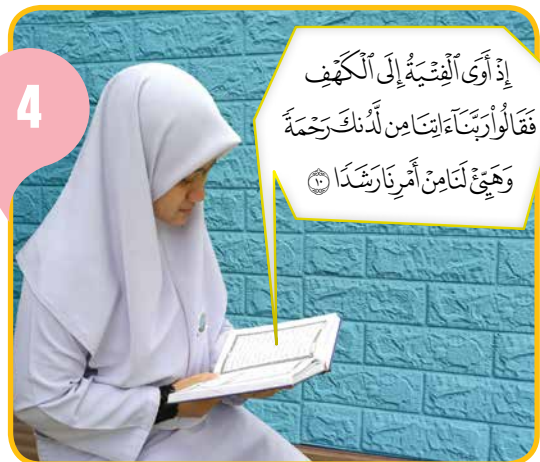 4
إِذۡ أَوَى ٱلۡفِتۡيَةُ إِلَى ٱلۡكَهۡفِ
فَقَالُواْ رَبَّنَآ ءَاتِنَا مِن لَّدُنكَ رَحۡمَةٗ
وَهَيِّئۡ لَنَا مِنۡ أَمۡرِنَا رَشَدٗا ١٠